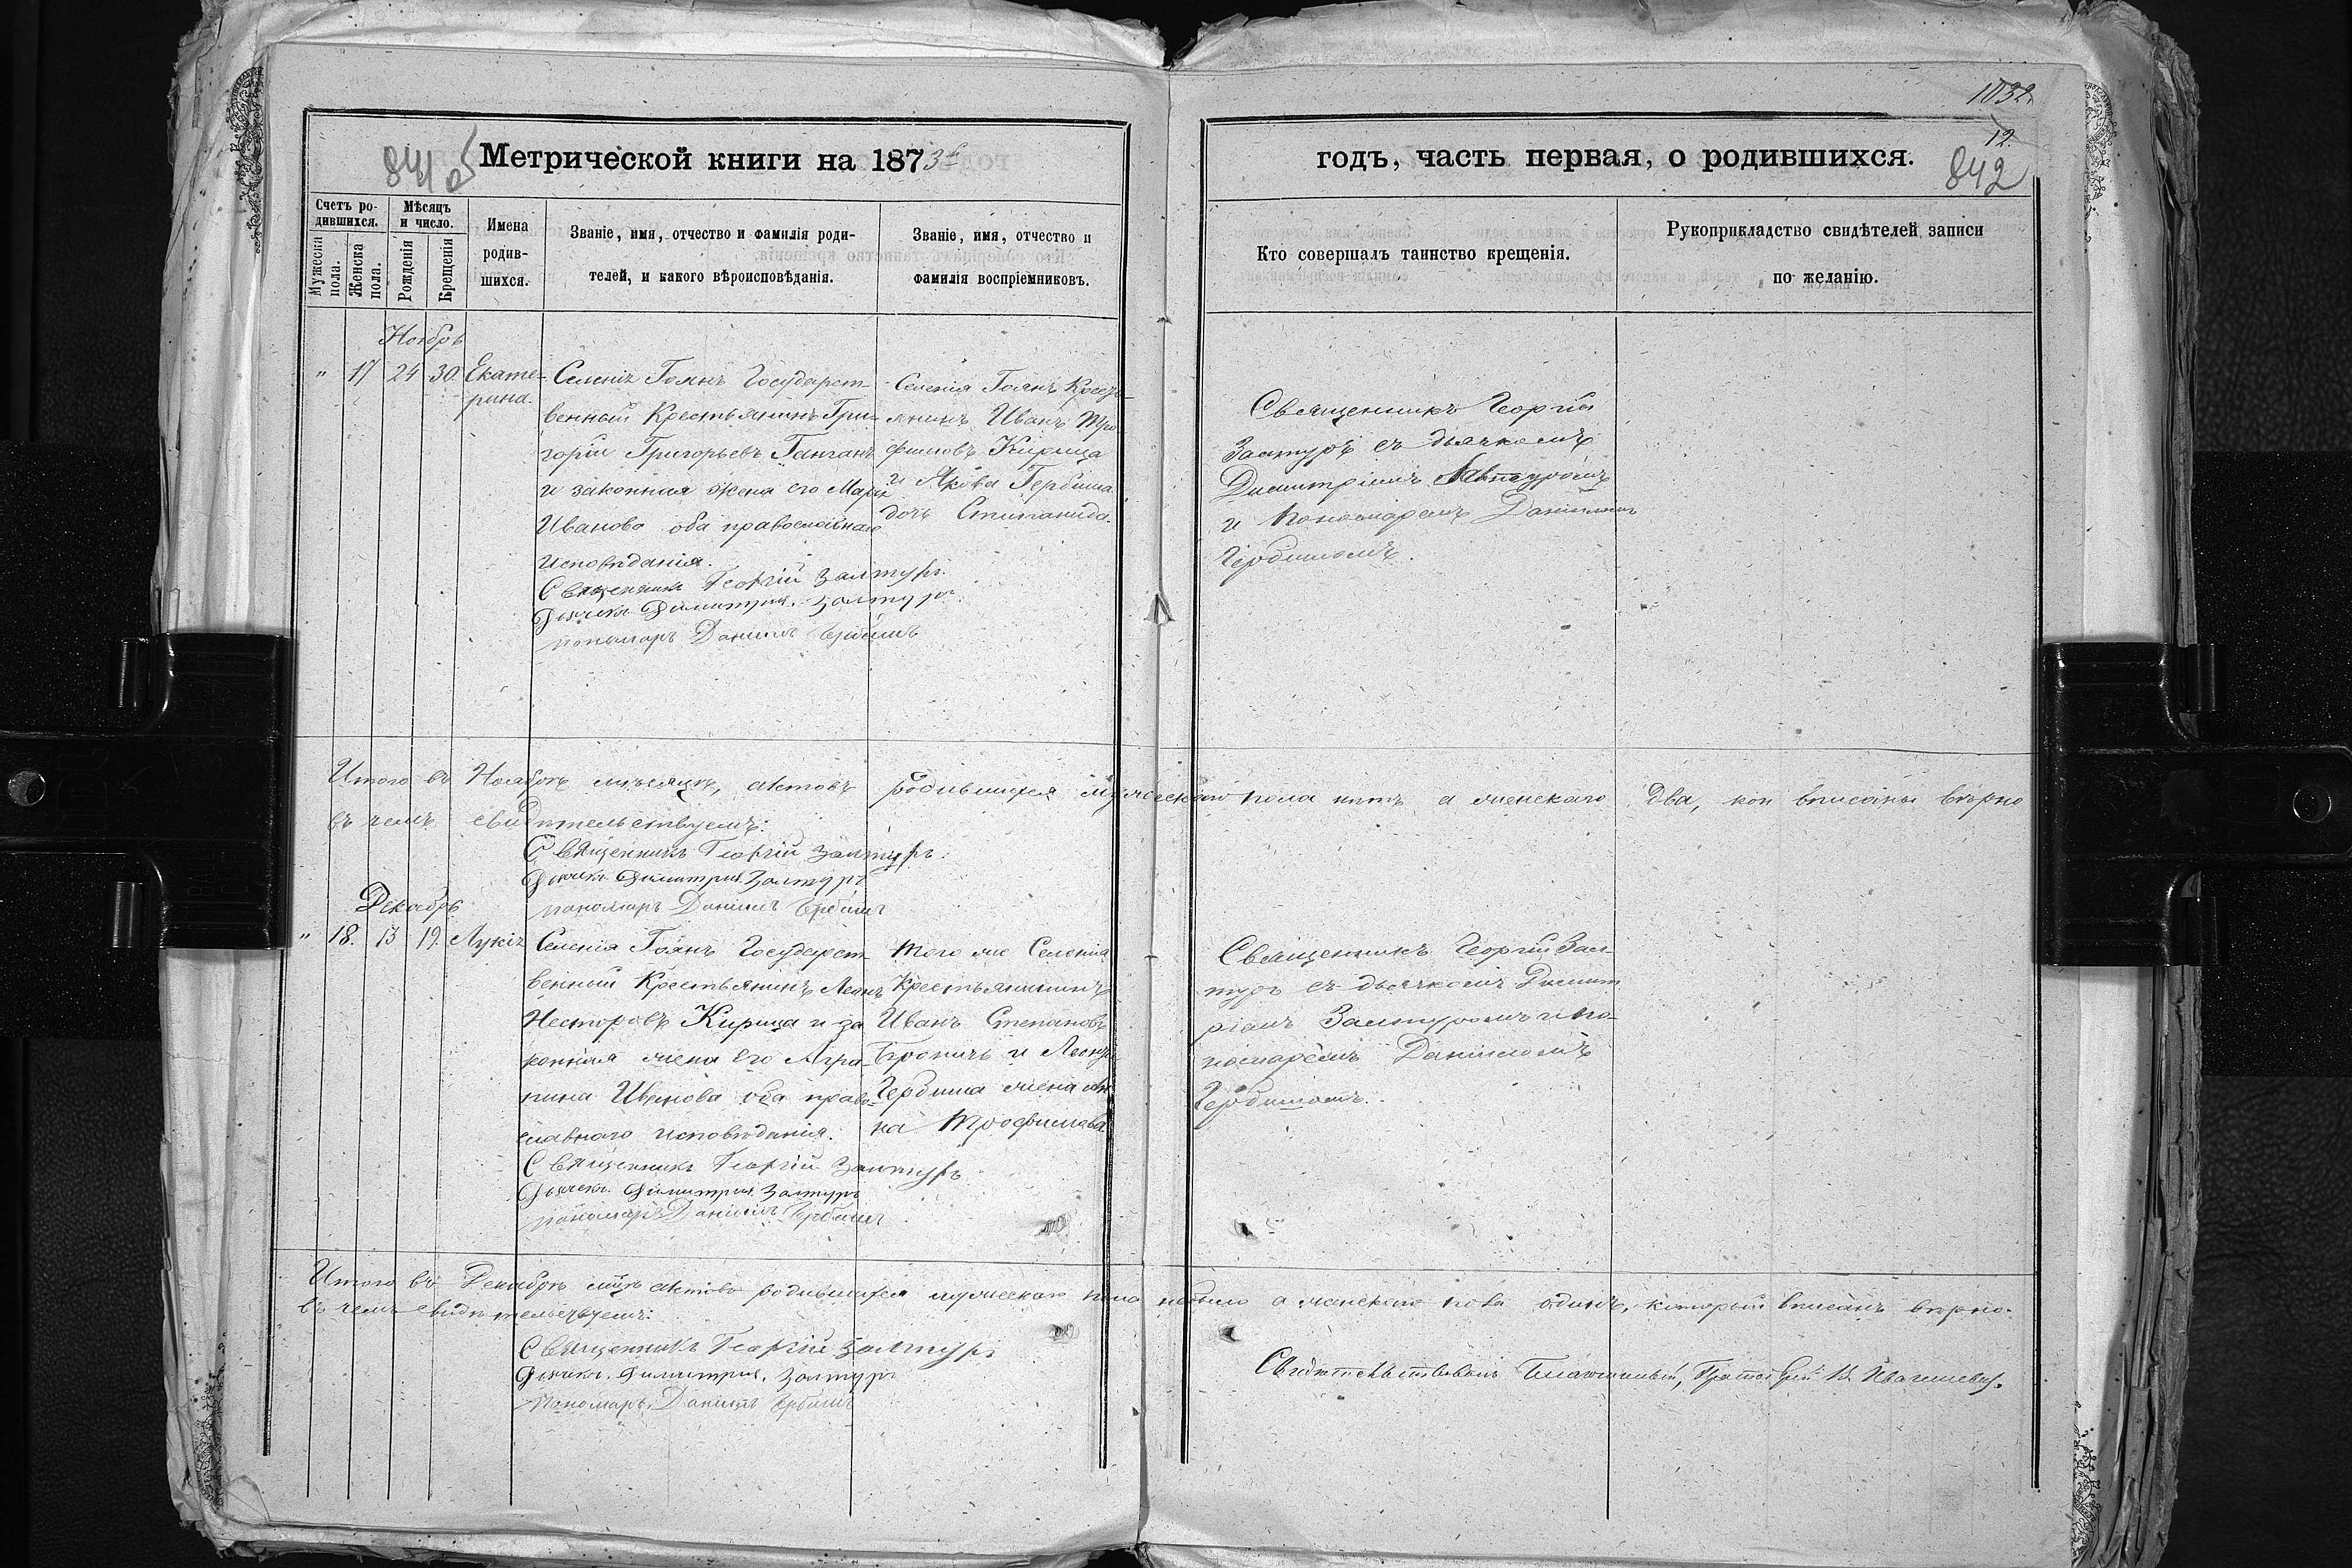 1032
12.
841 об
842
Метрической книги на 1873й
годъ, часть первая, о родившихся.
Счетъ ро-
дившихся.
Мужеска
пола.
Женска
пола.
Мѣсяцъ
и число.
Рожденія
Крещенія
Имена
родив-
шихся.
Званіе, имя, отчество и фамилія роди-
телей, и какого вѣроисповѣданія.
Званіе, имя, отчество и
фамилія воспріемниковъ.
Кто совершалъ таинство крещенія.
Рукоприкладство свидѣтелей записи
по желанію.
Ноябрь
" 17 24 30. Екате-
рина.
Селенія Гоянъ Государст-
венный Крестьянинъ Гри-
горій Григорьевъ Ганганъ
и законная жена его Марія
Иванова оба православнаго
исповѣданія.
Священникъ Георгій Залтуръ.
Дьячекъ Димитрій Залтуръ.
пономарь Даниилъ Чебанъ
Селенія Гоянъ Кресть-
янинъ Иванъ Тро
фимовъ Кирица
и Якова Гербиша
дочь Стипанида.
Священникъ Георгій
Залтуръ съ дьячкомъ
Димитріемъ Залтуромъ
и Пономаремъ Данииломъ
Итого въ Ноябрѣ мѣсяцѣ, актовъ родившихся мужескаго пола нѣтъ а женскаго два, кои вписаны вѣрно
въ чемъ свидѣтельствуемъ:
Священникъ Георгій Залтуръ.
Дьячекъ Димитрій Залтуръ
пономарь Даниилъ
Декабрь
" 18. 13 19. Лукія
Селенія Гоянъ Государст-
венный Крестьянинъ Леонъ
Несторовъ Кирица и за
конная жена его Агра-
пина Иванова оба право-
славнаго исповѣданія.
Священникъ Георгій Залтуръ
Дьячекъ Димитрій Залтуръ
пономарь Даниилъ
Того же Селенія
Крестьянинъ
Иванъ Степановъ
и Леонъ
Гербиша жена Ан
на Трофимова
Священникъ Георгій Зал-
туръ съ дьячкомъ Димит
ріемъ Залтуромъ и по-
номаремъ Данииломъ
Итого въ Декабрѣ мцѣ актовъ родившихся мужескаго пола небыло а женскаго пола одинъ, который вписанъ вѣрно.
въ чемъ свидѣтельствуемъ:
Священникъ Георгій Залтуръ
Дьячекъ Димитрій Залтуръ
Пономарь Даниилъ
Свидѣтельствовалъ Благочинный, Протоіерей